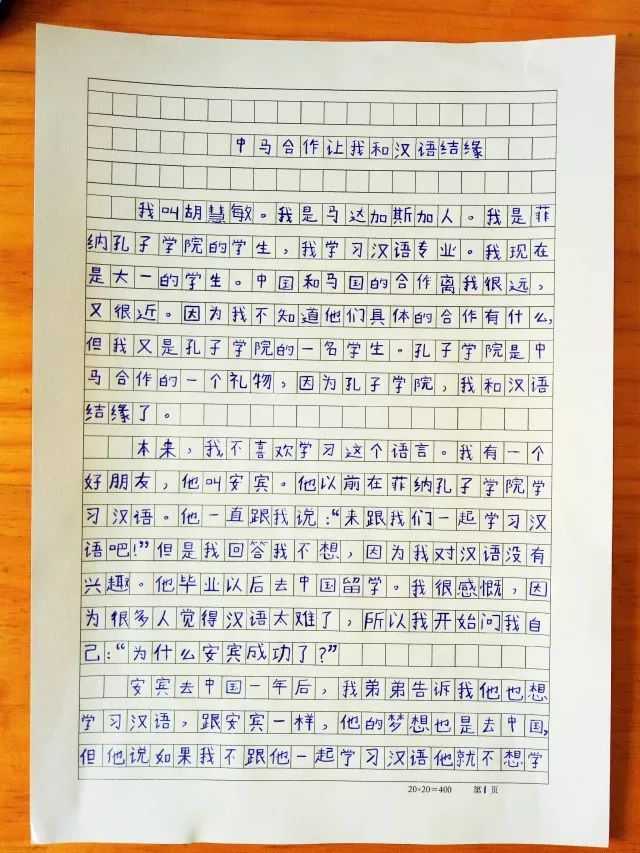 中马合作让我和汉语结缘
我叫胡慧敏。我是马达加斯加人。我是菲
纳孔子学院的学生，我学习汉语专业。我现在
是大一的学生。中国和马国的合作离我很远，
又很近。因为我不知道他们具体的合作有什么，
但我又是孔子学院的一名学生。孔子学院是中
马合作的一个礼物，因为孔子学院，我和汉语
结缘了。
本来，我不喜欢学习这个语言。我有一个
好朋友，他叫安宾。他以前在菲纳孔子学院学
习汉语。他一直跟我说：“来跟我们一起学习汉
语吧！”但是我回答我不想，因为我对汉语没有
兴趣。他毕业以后去中国留学。我很感慨，因
为很多人觉得汉语太难了，所以我开始问我自
己：“为什么安宾成功了？”
安宾去中国一年后，我弟弟告诉我他也想
学习汉语，跟安宾一样，他的梦想也是去中国，
但他说如果我不跟他一起学习汉语他就不想学
20×20=400 第1页